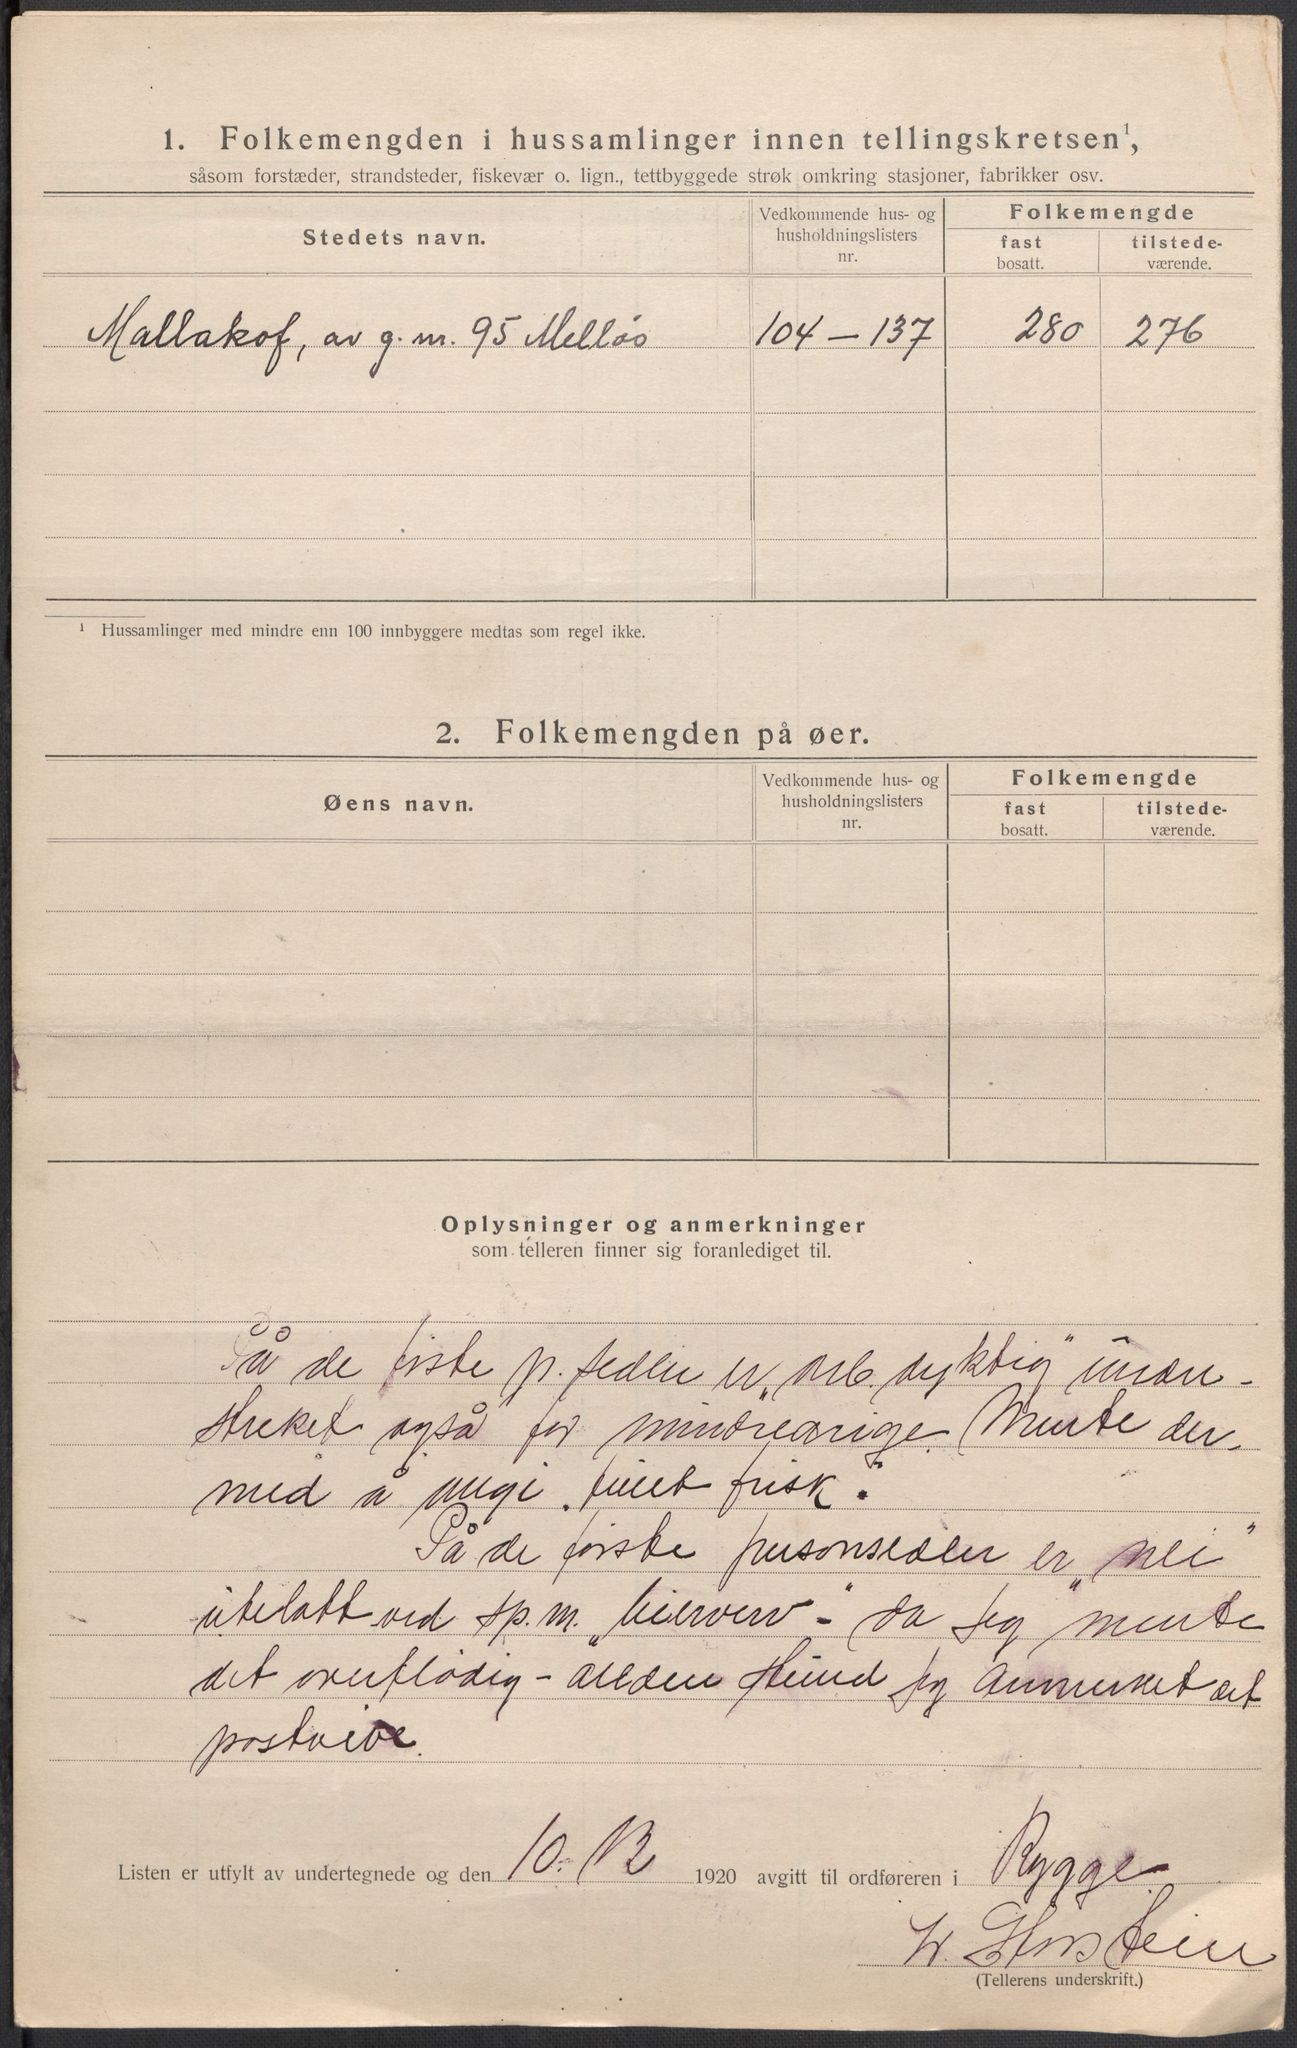 1. Folkemengden i hussamlinger innen tellingskretsen¹,
såsom forstæder, strandsteder, fiskevær o. lign., tettbyggede strøk omkring stasjoner, fabrikker osv.
Stedets navn.
Vedkommende hus- og
husholdningslisters
nr.
Folkemengde
fast
bosatt.
tilstede-
værende.
Mallakof, av g. nr. 95 Melløs 104 — 137 280 276
¹ Hussamlinger med mindre enn 100 innbyggere medtas som regel ikke.
2. Folkemengden på øer.
Øens navn.
Vedkommende hus- og
husholdningslisters
nr.
Folkemengde
fast
bosatt.
tilstede-
værende.
Oplysninger og anmerkninger
som telleren finner sig foranlediget til.
På de første p. sedler er „arb. dyktig" under-
streket også for mindreårige. Mente der-
med å angi „fuldt frisk".
På de første personsedler er „nei"
utelatt ved sp.m. „bierverv-" da jeg mente
det overflødig - stund jeg anmerket det
Listen er utfylt av undertegnede og den 10-12 1920 avgitt til ordføreren i Rygge
(Tellerens underskrift.)